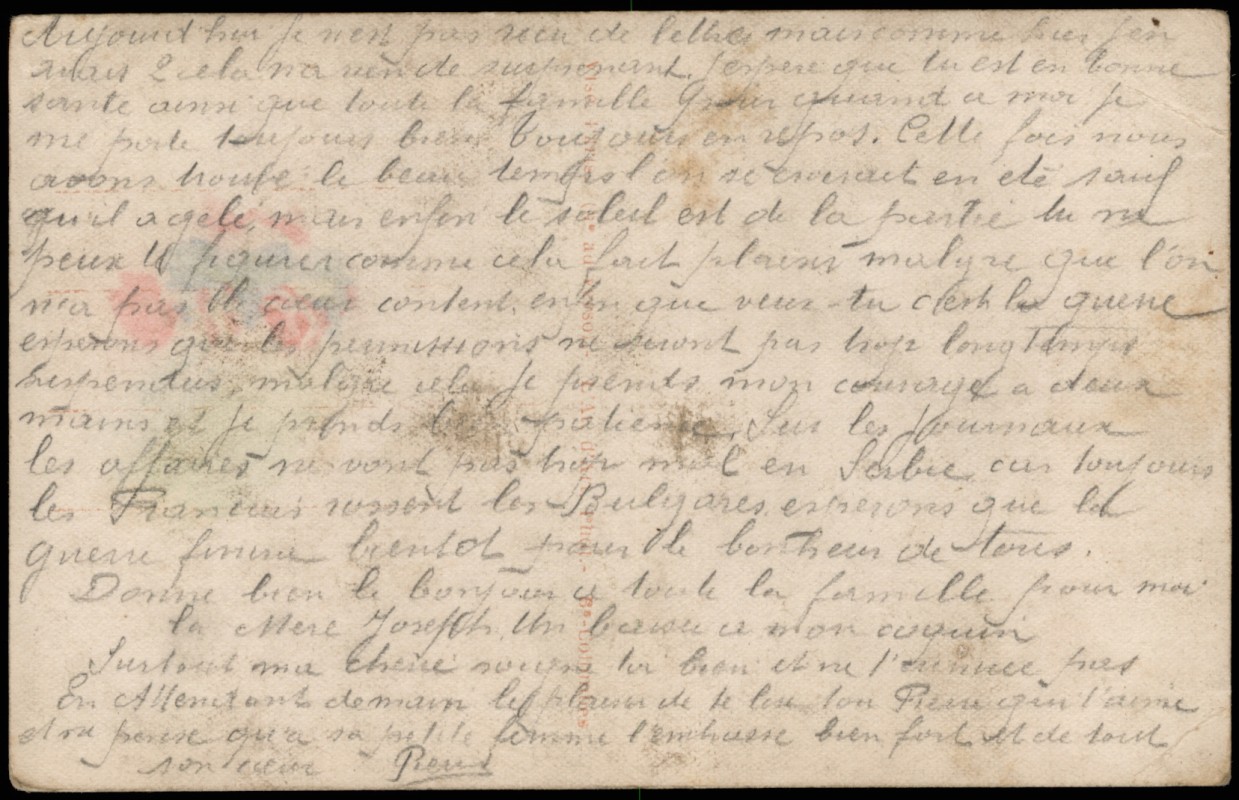 Aujourd'hui je n'est pas recu de lettre mais comme hier j'en
avais 2 cela na rien de surprenant. J'espere que tu est en bonne
sante ainsi que toute la famille quand a moi je
me porte toujours bien toujours en repos. Cette fois nous
avons trouve le beau temps l'on se croirait en eté sauf
qu'il a gelé, mais enfin le soleil est de la partie tu ne
peux te figurer comme cela fait plaisir malgre que l'on
n'a pas le cœur content, enfin que veux-tu c'est la guerre
esperons que les permissions ne seront pas trop longtemps
suspendus, malgre cela je prends mon courage a deux
mains et je prends patience. Sur les journaux
les affaires ne vont pas trop mal en Serbie car toujours
les Francais rossent les Bulgares, esperons que la
guerre finira bientot pour le bonheur de tous.
Donne bien le bonjour a toute la famille pour moi
la Mere Joseph. Un baiser a mon coquin
Surtout ma cherie soigne toi bien et ne t'ennuee pas
En Attendant demain le plaisir de te lire ton Pierre qui t'aime
et ne pense qu'a sa petite femme t'embrasse bien fort et de tout
son cœur Pierre